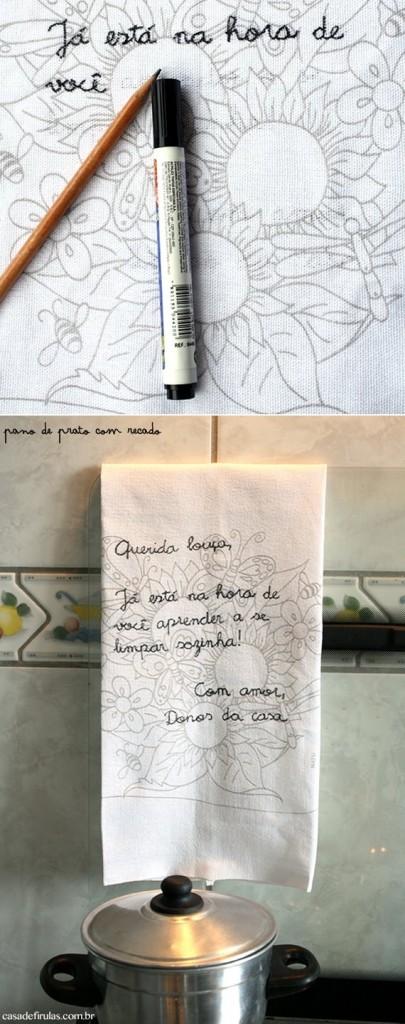 Já está na hora de
você
REF.
pano de prato com recado
Querida louça,
Já está na hora de
você aprender a se
limpar sozinha!
Com amor,
Donos da casa
casadefirulas.com.br